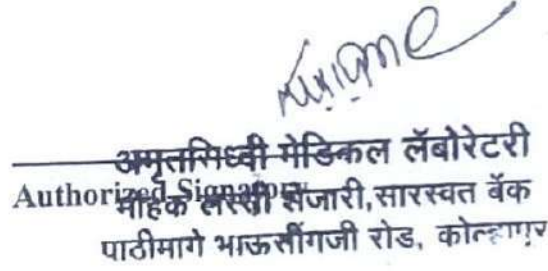 अमृतसिध्दी मेडिकल लॅबोरेटरी
Authorized Signatory
मोहक लस्सी शेजारी,सारस्वत बँक
पाठीमागे भाऊसींगजी रोड, कोल्हापूर